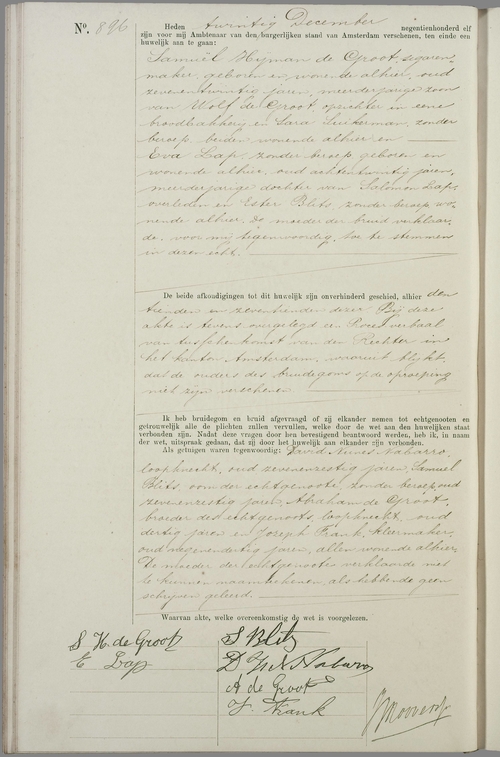 No. 896
Heden twintig December negentienhonderd elf
zijn voor mij Ambtenaar van den burgerlijken stand van Amsterdam verschenen, ten einde een
huwelijk aan te gaan:
Samuël Hijman de Groot, sigaren-
maker, geboren en wonende alhier, oud
zevenentwintig jaren, meerderjarige zoon
van Wolf de Groot, opzichter in eene
broodbakkerij en Sara Suikerman, zonder
beroep, beiden wonende alhier, en
Eva Lap, zonder beroep, geboren en
wonende alhier, oud achtentwintig jaren,
meerderjarige dochter van Salomon Lap,
overleden en Ester Blits, zonder beroep, wo-
nende alhier. De moeder der bruid verklaar-
de, voor mij tegenwoordig, toe te stemmen
in dezen echt.
De beide afkondigingen tot dit huwelijk zijn onverhinderd geschied, alhier den
tienden en zeventienden dezer. Bij deze
akte is tevens overgelegd een Proces verbaal
van tusschenkomst van den Rechter in
het kanton Amsterdam, waaruit blijkt,
dat de ouders des bruidegoms op de oproeping
niet zijn verschenen
Ik heb bruidegom en bruid afgevraagd of zij elkander nemen tot echtgenooten en
getrouwelijk alle de plichten zullen vervullen, welke door de wet aan den huwelijken staat
verbonden zijn. Nadat deze vragen door hen bevestigend beantwoord werden, heb ik, in naam
der wet, uitspraak gedaan, dat zij door het huwelijk aan elkander zijn verbonden.
Als getuigen waren tegenwoordig: David Nunes Nabarro,
loopknecht, oud zevenenzestig jaren, Samuel
Blits, oom der echtgenoote, zonder beroep, oud
zevenenzestig jaren, Abraham de Groot,
broeder des echtgenoots, loopknecht, oud
dertig jaren en Joseph Frank, kleermaker,
oud negenendertig jaren, allen wonende alhier.
De moeder der echtgenoote verklaarde niet
te kunnen naamteekenen, als hebbende geen
schrijven geleerd.
Waarvan akte, welke overeenkomstig de wet is voorgelezen.
S H. de Groot
E Lap
S Blits
D N Nabarro
A de Groot
J. Frank